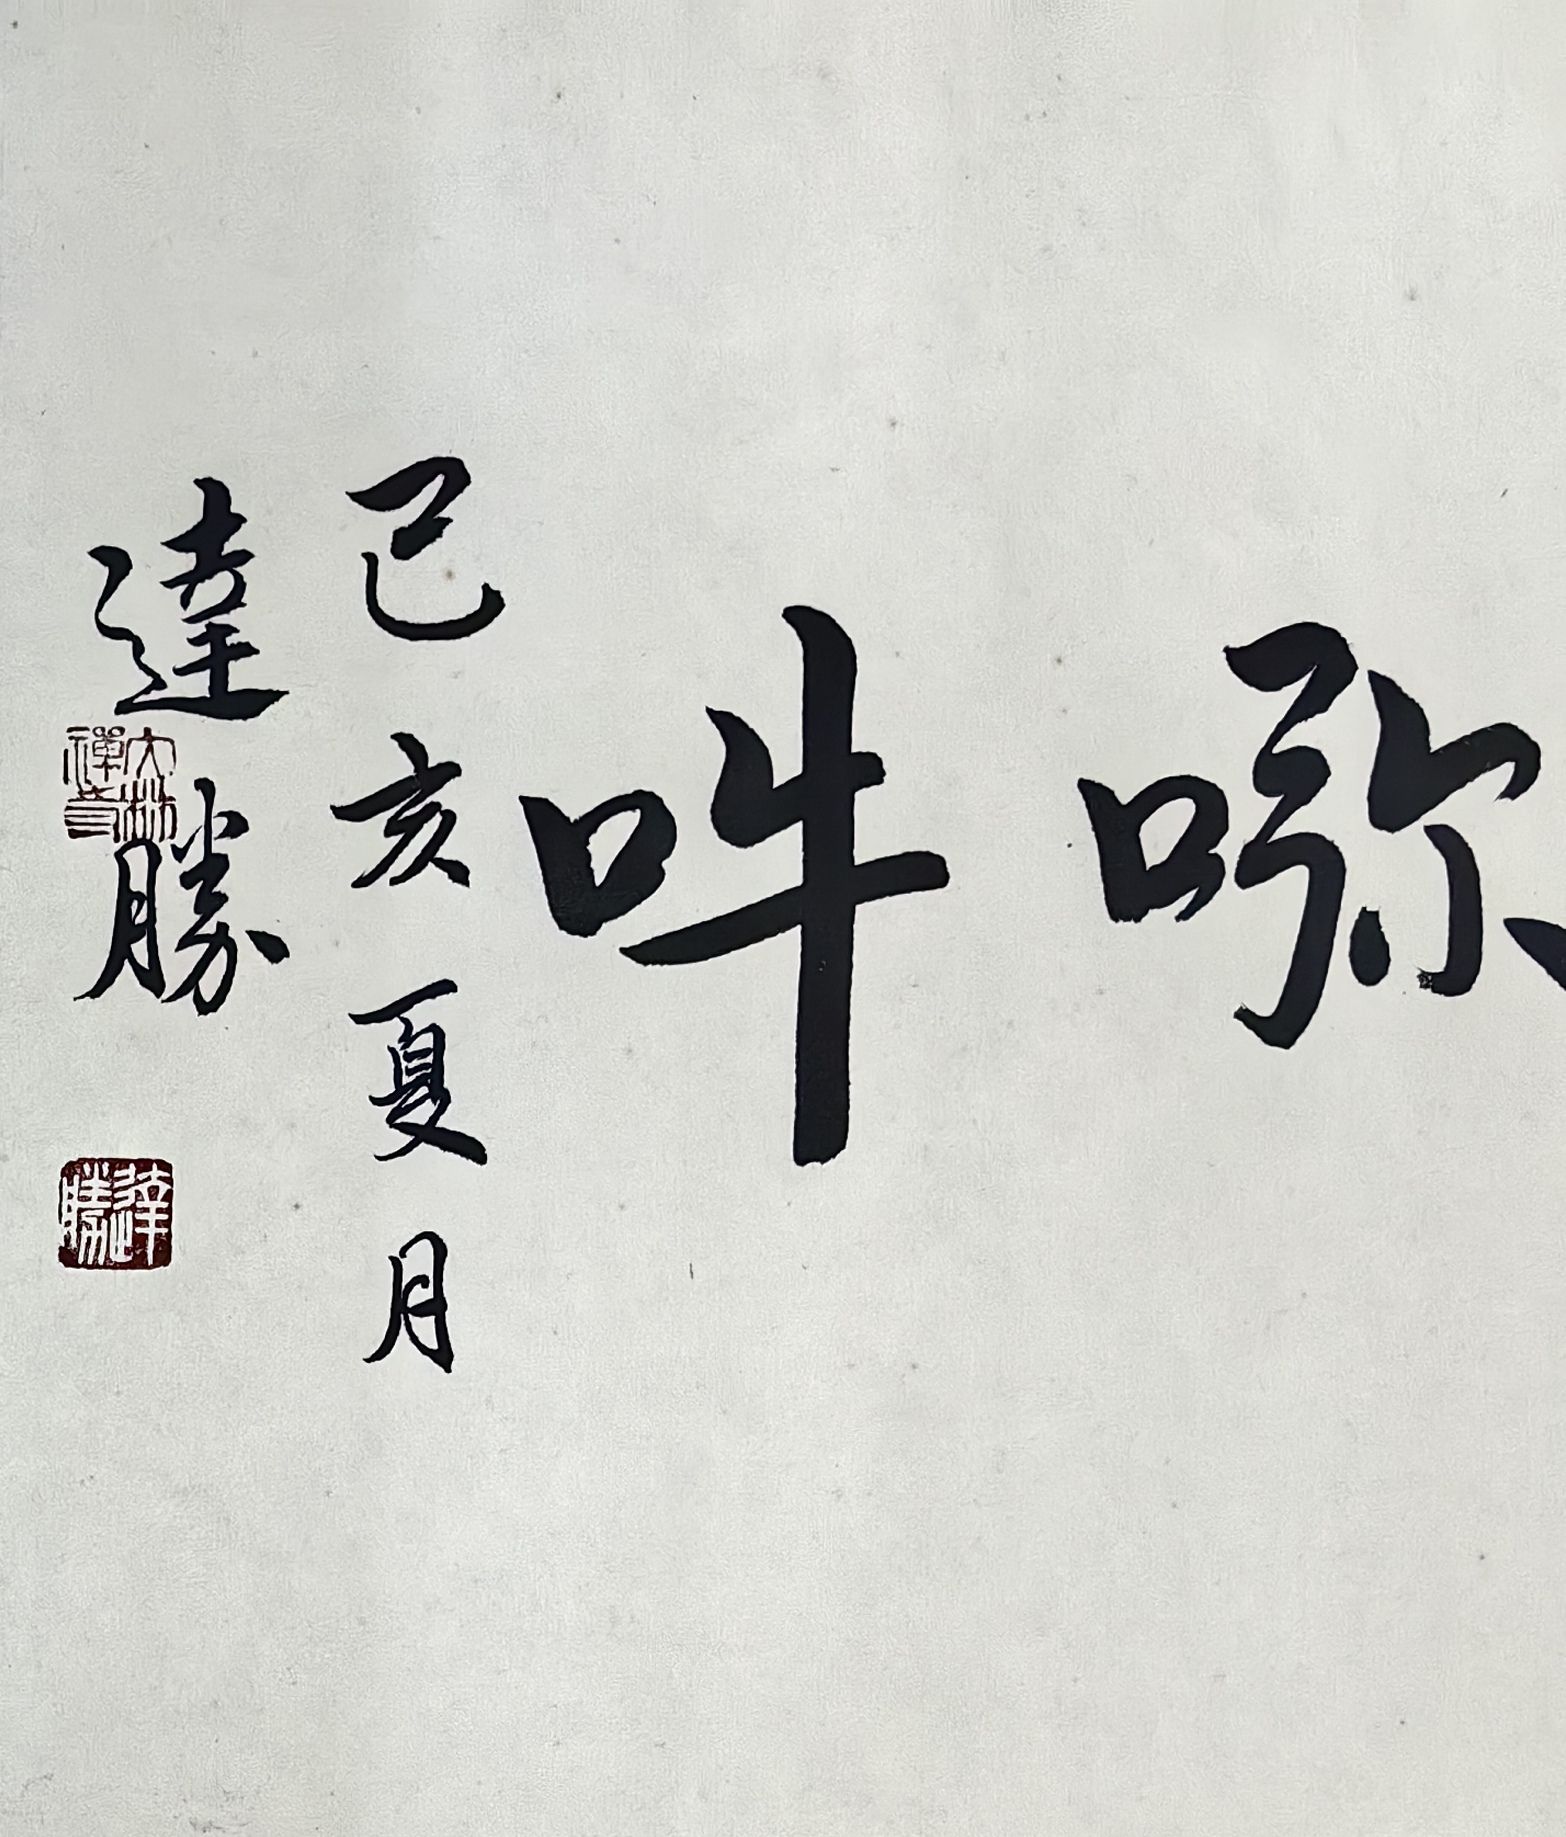 吽
己亥夏月
達勝
大林禪寺
達勝